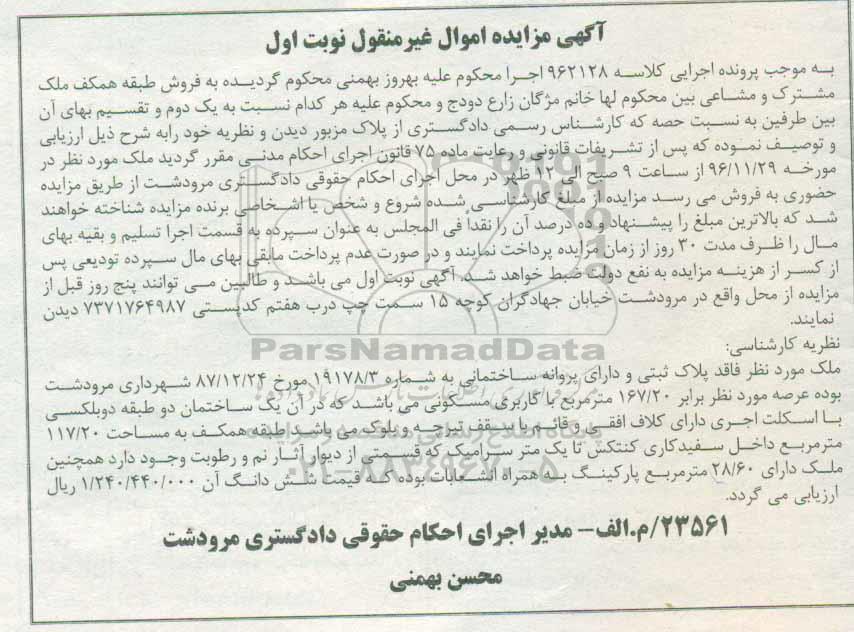 آگهی مزایده اموال غیرمنقول نوبت اول
به موجب پرونده اجرایی کلاسه ۹۶۲۱۲۸ اجرا محکوم علیه بهروز بهمنی محکوم گردیده به فروش طبقه همکف ملک
مشترک و مشاعی بین محکوم لها خانم مژگان زارع دودج و محکوم علیه هر کدام نسبت به یک دوم و تقسیم بهای آن
بین طرفین به نسبت حصه که کارشناس رسمی دادگستری از پلاک مزبور دیدن و نظریه خود رابه شرح ذیل ارزیابی
و توصیف نموده که پس از تشریفات قانونی و رعایت ماده ۷۵ قانون اجرای احکام مدنی مقرر گردید ملک مورد نظر در
مورخه ۹۶/۱۱/۲۹ از ساعت ۹ صبح الی ۱۲ ظهر در محل اجرای احکام حقوقی دادگستری مرودشت از طریق مزایده
حضوری به فروش می رسد مزایده از مبلغ کارشناسی شده شروع و شخص یا اشخاصی برنده مزایده شناخته خواهند
شد که بالاترین مبلغ را پیشنهاد و ده درصد آن را نقداً فی المجلس به عنوان سپرده به قسمت اجرا تسلیم و بقیه بهای
مال را ظرف مدت ۳۰ روز از زمان مزایده پرداخت نمایند و در صورت عدم پرداخت مابقی بهای مال سپرده تودیعی پس
از کسر از هزینه مزایده به نفع دولت ضبط خواهد شد. آگهی نوبت اول می باشد و طالبین می توانند پنج روز قبل از
مزایده از محل واقع در مرودشت خیابان جهادگران کوچه ۱۵ سمت چپ درب هفتم کدپستی ۷۳۷۱۷۶۴۹۸۷ دیدن
نمایند.
ParsNamadData
نظریه کارشناسی:
ملک مورد نظر فاقد پلاک ثبتی و دارای پروانه ساختمانی به شماره ۱۹۱۷۸/۳ مورخ ۸۷/۱۲/۲۴ شهرداری مرودشت
بوده عرصه مورد نظر برابر ۱۶۷/۲۰ مترمربع با کاربری مسکونی می باشد که در آن یک ساختمان دو طبقه دوبلکسی
با اسکلت اجری دارای کلاف افقی و قائم با سقف تیرچه و بلوک می باشد طبقه همکف به مساحت ۱۱۷/۲۰
مترمربع داخل سفیدکاری کنتکش تا یک متر سرامیک که قسمتی از دیوار آثار نم و رطوبت وجود دارد همچنین
ملک دارای ۲۸/۶۰ مترمربع پارکینگ به همراه انشعابات بوده که قیمت شش دانگ آن ۱/۲۴۰/۴۴۰/۰۰۰ ریال
ارزیابی می گردد.
۲۳۵۶۱/م.الف- مدیر اجرای احکام حقوقی دادگستری مرودشت
محسن بهمنی